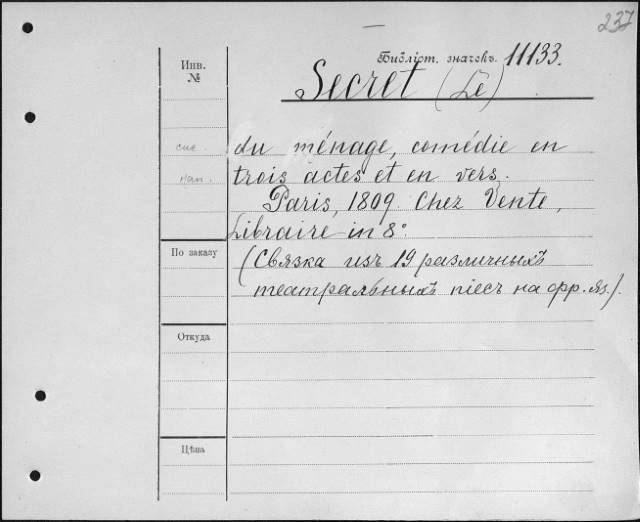 237
Библіот. значекъ. 11133.
Инв.
№
Secret (Le)
du ménage, comédie en
trois actes et en vers.
Paris, 1809. Chez Vente,
Libraire in 8°
По заказу
(Связка изъ 19 различныхъ
театральныхъ піесъ на фр. яз.).
Откуда
Цѣна